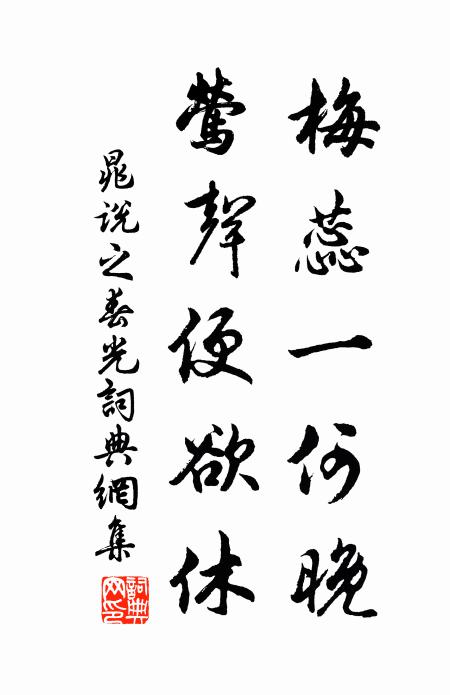 梅蕊一何晚
鶯聲便欲休
晁說之春光詞典網集
詞典網印